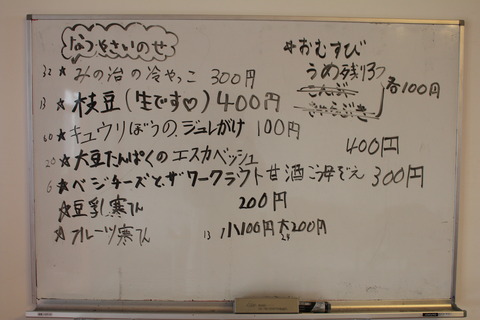 なつやさいのせ
32 ★ みの治の冷やっこ 300円
13 ★ 枝豆(生です♡) 400円
60 ★ キュウリぼうの、ジュレがけ 100円
20 ★ 大豆たんぱくのエスカベッシュ 400円
6 ★ ベジチーズとザワークラウト甘酒こうぼぞえ 300円
★ 豆乳寒てん 200円
★ フルーツ寒てん 13 小100円 大200円
＊おむすび
うめ残り3つ
こんぶ
各100円